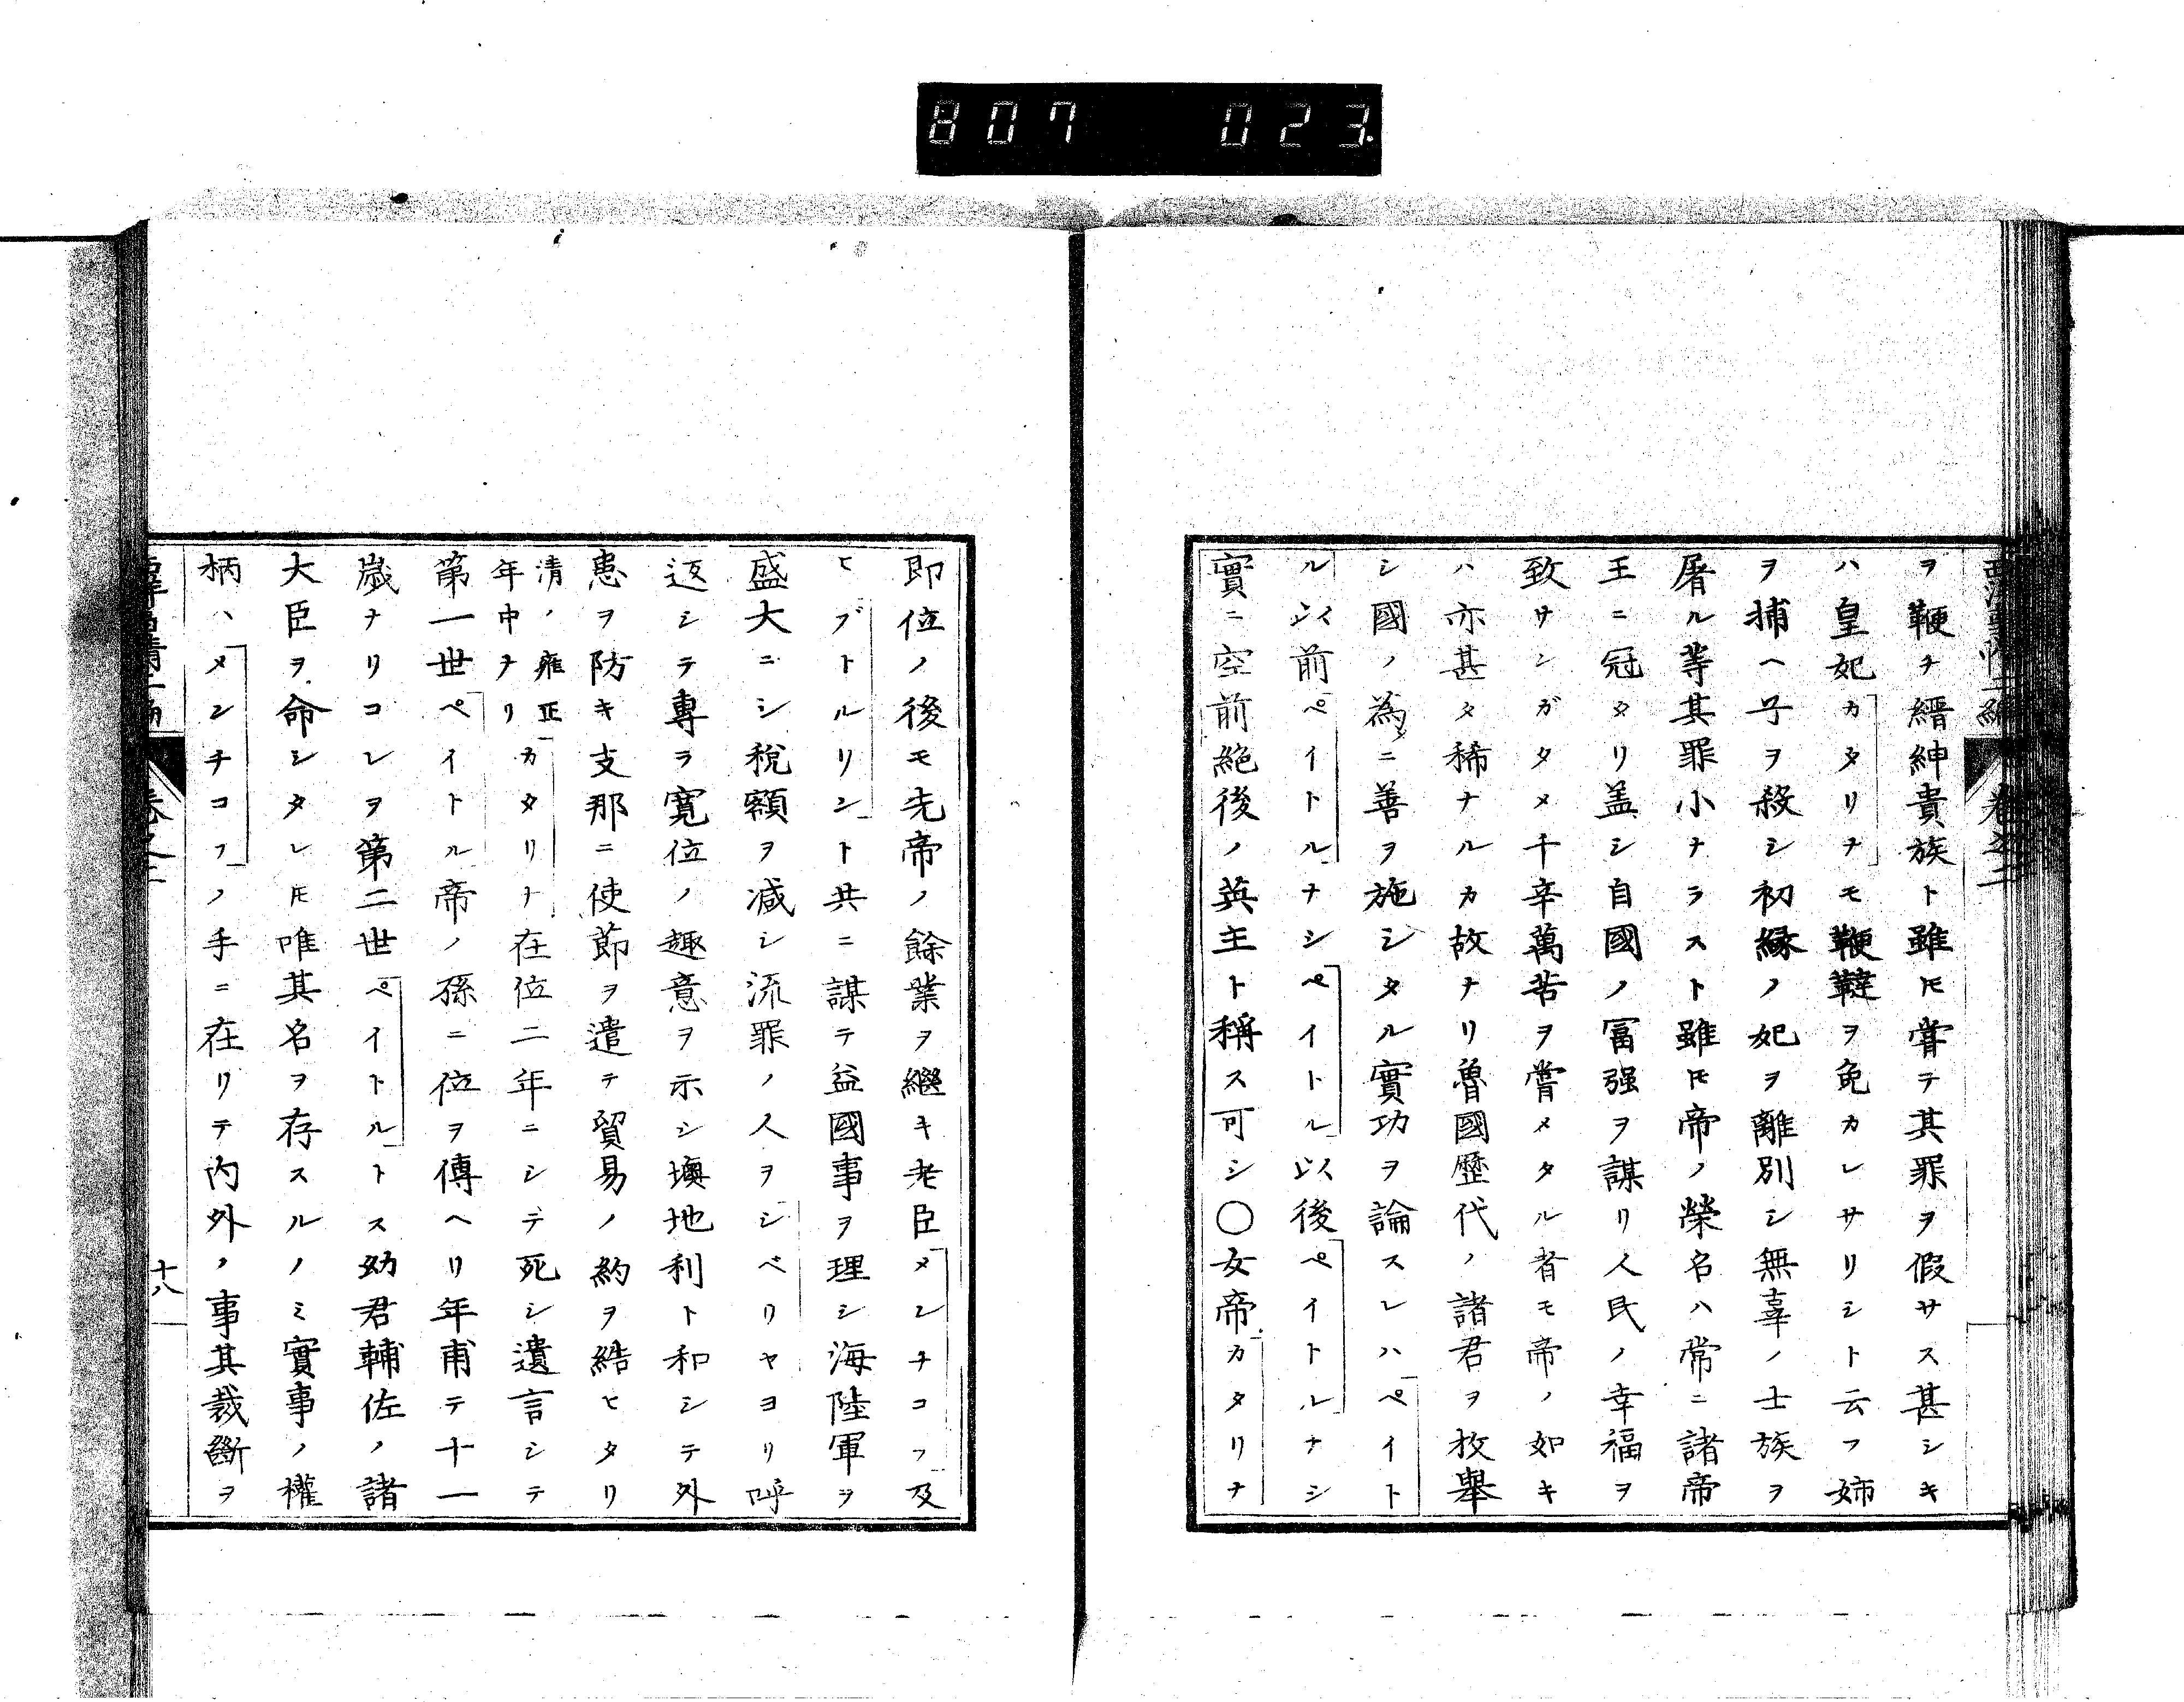 807 023
西洋事情二編 卷之二
ヲ鞭チ縉紳貴族ト雖𪜈嘗テ其罪ヲ假サス甚シキ
ハ皇妃カタリナモ鞭韃ヲ免カレサリシト云フ姉
ヲ捕ヘ子ヲ殺シ初縁ノ妃ヲ離別シ無辜ノ士族ヲ
屠ル等其罪小ナラスト雖𪜈帝ノ榮名ハ常ニ諸帝
王ニ冠タリ盖シ自國ノ冨强ヲ謀リ人民ノ幸福ヲ
致サンガタメ千辛萬苦ヲ嘗メタル者モ帝ノ如キ
ハ亦甚タ稀ナルカ故ナリ魯國歷代ノ諸君ヲ枚舉
シ國ノ為ニ善ヲ施シタル實功ヲ論スレハペイト
ル以前ペイトルナシペイトル以後ペイトルナシ
實ニ空前絶後ノ英主ト稱ス可シ〇女帝カタリナ
即位ノ後モ先帝ノ餘業ヲ繼キ老臣メンチコフ及
ヒブトルリント共ニ謀テ益國事ヲ理シ海陸軍ヲ
盛大ニシ税額ヲ减シ流罪ノ人ヲシベリヤヨリ呼
返シテ專ラ寛位ノ趣意ヲ示シ墺地利ト和シテ外
患ヲ防キ支那ニ使節ヲ遣テ貿易ノ約ヲ結ヒタリ
清ノ雍正年中ナリカタリナ在位二年ニシテ死シ遺言シテ
第一世ペイトル帝ノ孫ニ位ヲ傳ヘリ年甫テ十一
歳ナリコレヲ第二世ペイトルトス幼君輔佐ノ諸
大臣ヲ命シタレ𪜈唯其名ヲ存スルノミ實事ノ權
柄ハメンチコフノ手ニ在リテ内外ノ事其裁斷ヲ
十八